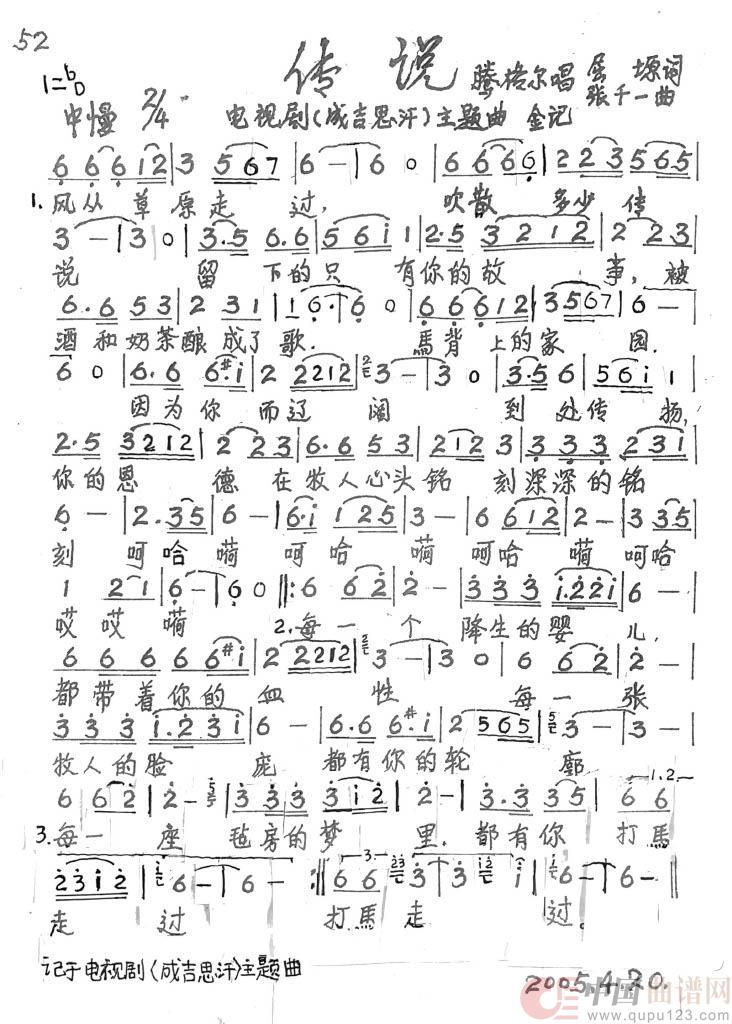 52
传说 腾格尔唱 屈塬词
张千一曲
1=bD
中慢 2/4 电视剧(成吉思汗)主题曲 金记
6 6 6 1 2 | 3 5 6 7 | 6 — | 6 0 | 6 6 6 6 | 2 2 3 5 6 5 |
1.风从草原走过, 吹散多少传
3 — | 3 0 | 3.5 6.6 | 5 6 i 1 | 2.5 3 2 1 2 | 2 2 3 |
说 留下的只有你的故事,被
6.6 5 3 | 2 3 1 | 1 6. | 6 0 | 6 6 6 1 2 | 3 5 6 7 | 6 — |
酒和奶茶酿成了歌. 馬背上的家园.
6 0 | 6.6 6 #i | 2 2 2 1 2 | 3 — | 3 0 | 3.5 6 | 5 6 i 1 |
因为你而辽阔 到处传扬,
2.5 3 2 1 2 | 2 2 3 | 6.6 5 3 | 2 1 2 3 | 3 3 3 3.3 | 2 3 i |
你的恩德在牧人心头铭刻深深的铭
6 — | 2.3 5 | 6 — | 6.i 1 2 5 | 3 — | 6 6 1 2 | 2 — | 3 3 5 |
刻 呵哈嗬呵哈嗬呵哈嗬呵哈
1 2 1 | 6 — | 6 0 ‖: 6 6 2 | 2 — | 3 3 3 i.2 2 i | 6 — |
哎哎嗬 2.每一个降生的婴儿,
6 6 6 6 6 #i | 2 2 2 1 2 | 3 — | 3 0 | 6 6 2 | 2 — |
都带着你的血性 每一张
3 3 3 i.2 3 i | 6 — | 6.6 6 #i | 2 5 6 5 | 3 — | 3 — |
牧人的脸庞 都有你的轮廓
6 6 2 | 2 — | 3 3 3 3 i 2 | 2 — | 3.3 3 5 | 6 6 | 1.2
3.每一座毡房的梦里.都有你打馬
2 3 i 2 | 6 — | 6 — :‖ 3. 6 6 | 3 | 3 i | 6 — | 6 — |
走过 打馬走过.
记于电视剧(成吉思汗)主题曲
2005.4.20.
中国曲谱网
www.qupu123.com